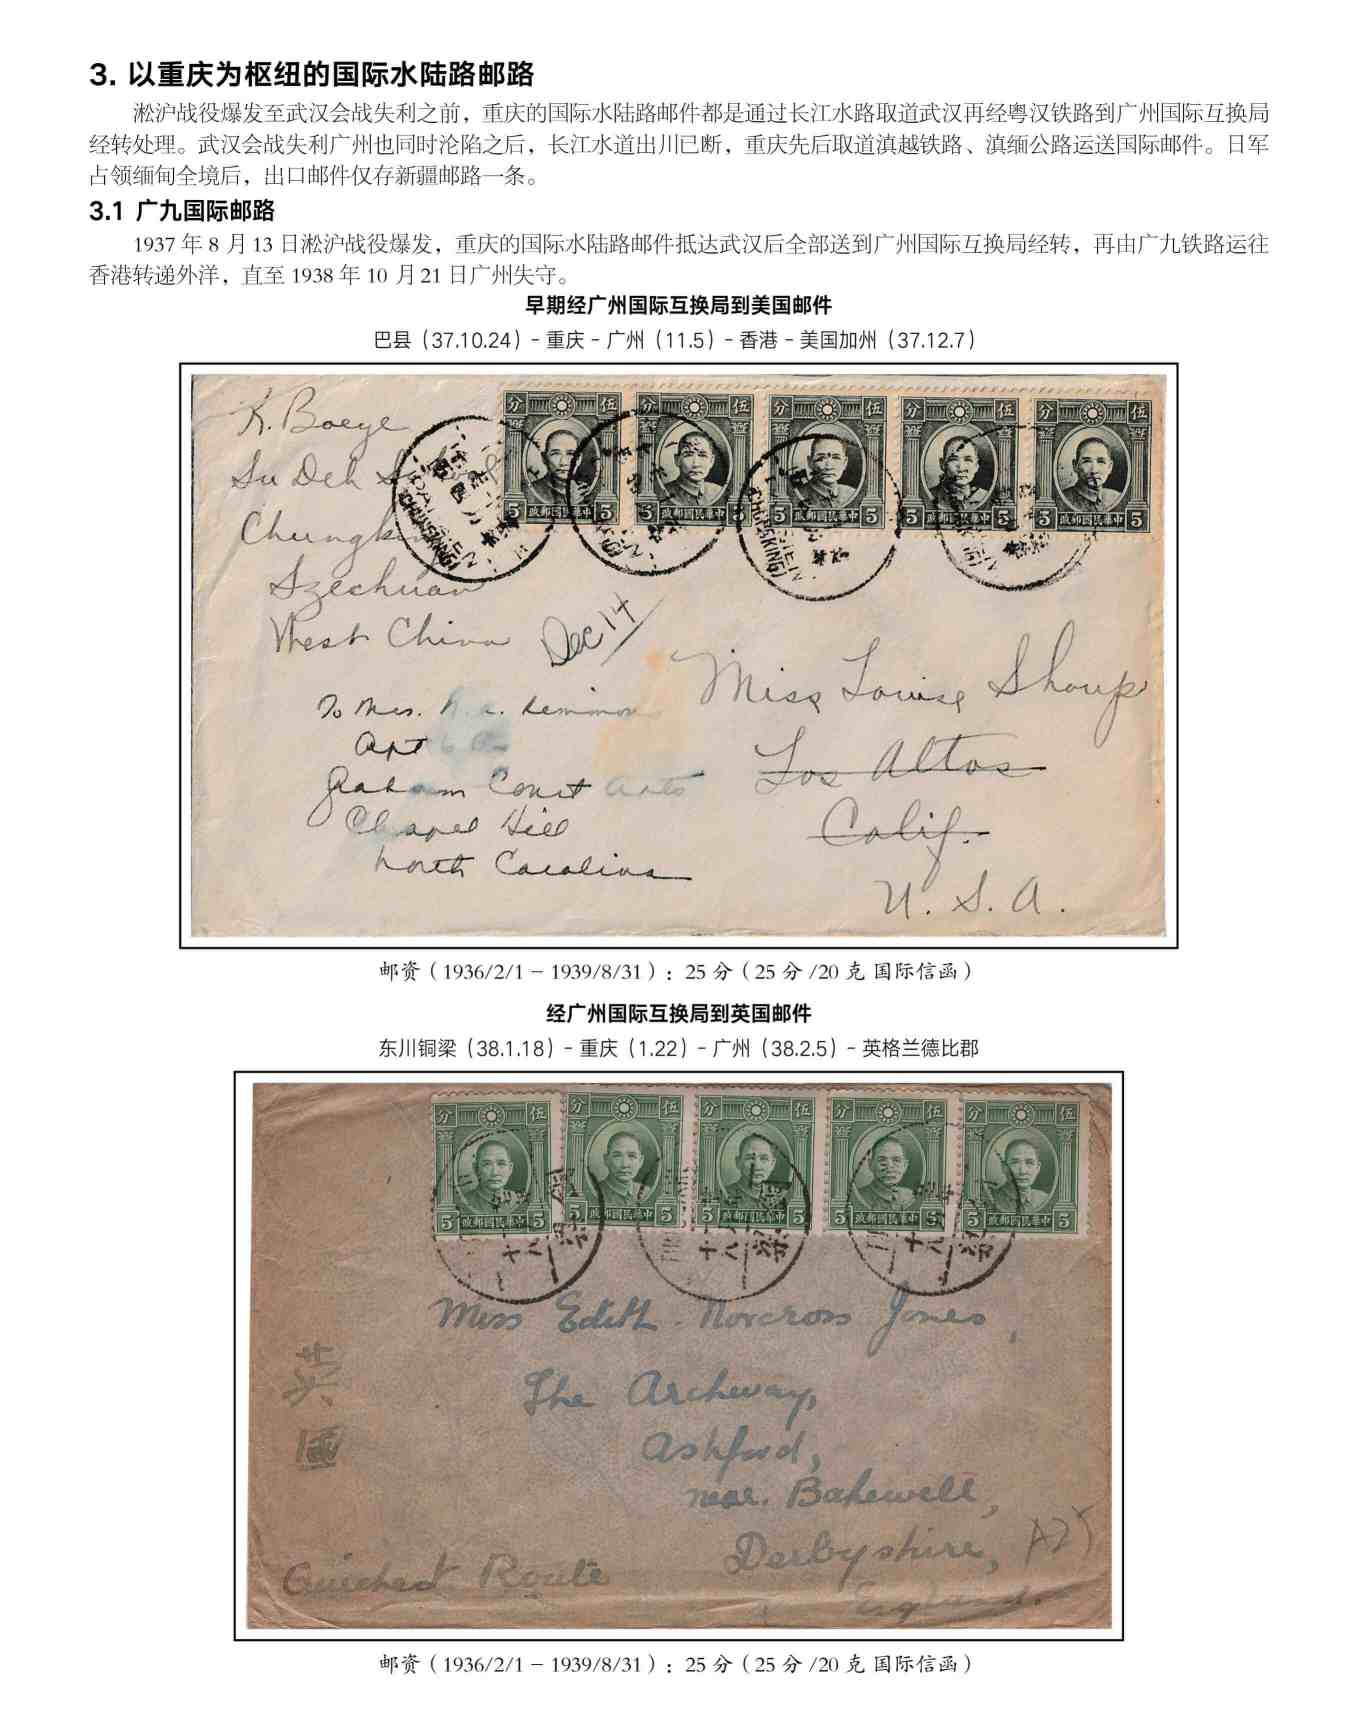 3. 以重庆为枢纽的国际水陆路邮路
淞沪战役爆发至武汉会战失利之前，重庆的国际水陆路邮件都是通过长江水路取道武汉再经粤汉铁路到广州国际互换局
经转处理。武汉会战失利广州也同时沦陷之后，长江水道出川已断，重庆先后取道滇越铁路、滇缅公路运送国际邮件。日军
占领缅甸全境后，出口邮件仅存新疆邮路一条。
3.1 广九国际邮路
1937 年 8 月 13 日淞沪战役爆发，重庆的国际水陆路邮件抵达武汉后全部送到广州国际互换局经转，再由广九铁路运往
香港转递外洋，直至 1938 年 10 月 21 日广州失守。
早期经广州国际互换局到美国邮件
巴县（37.10.24）- 重庆 - 广州（11.5）- 香港 - 美国加州（37.12.7）
分 伍 分 伍 分 伍 分 伍 分 伍
5 政郵國民華中 5 5 政郵國民華中 5 5 政郵國民華中 5 5 政郵國民華中 5 5 政郵國民華中 5
(CHUNGKING)
K. Boeye
Chungking
Szechuan
West China
Dec 14
Miss Louise Shoup
Los Altos
Calif.
U. S. A.
To Mrs.
Apt
Graham Court Apts
Chapel Hill
North Carolina
邮资（1936/2/1 – 1939/8/31）：25 分（25 分 /20 克 国际信函）
经广州国际互换局到英国邮件
东川铜梁（38.1.18）- 重庆（1.22）- 广州（38.2.5）- 英格兰德比郡
分 伍 分 伍 分 伍 分 伍 分 伍
5 政郵國民華中 5 5 政郵國民華中 5 5 政郵國民華中 5 5 政郵國民華中 5 5 政郵國民華中 5
Miss Edith Norcross Jones,
The Archway,
Ashford,
near. Bakewell,
Derbyshire,
England.
英國
Quickest Route
A25
邮资（1936/2/1 – 1939/8/31）：25 分（25 分 /20 克 国际信函）